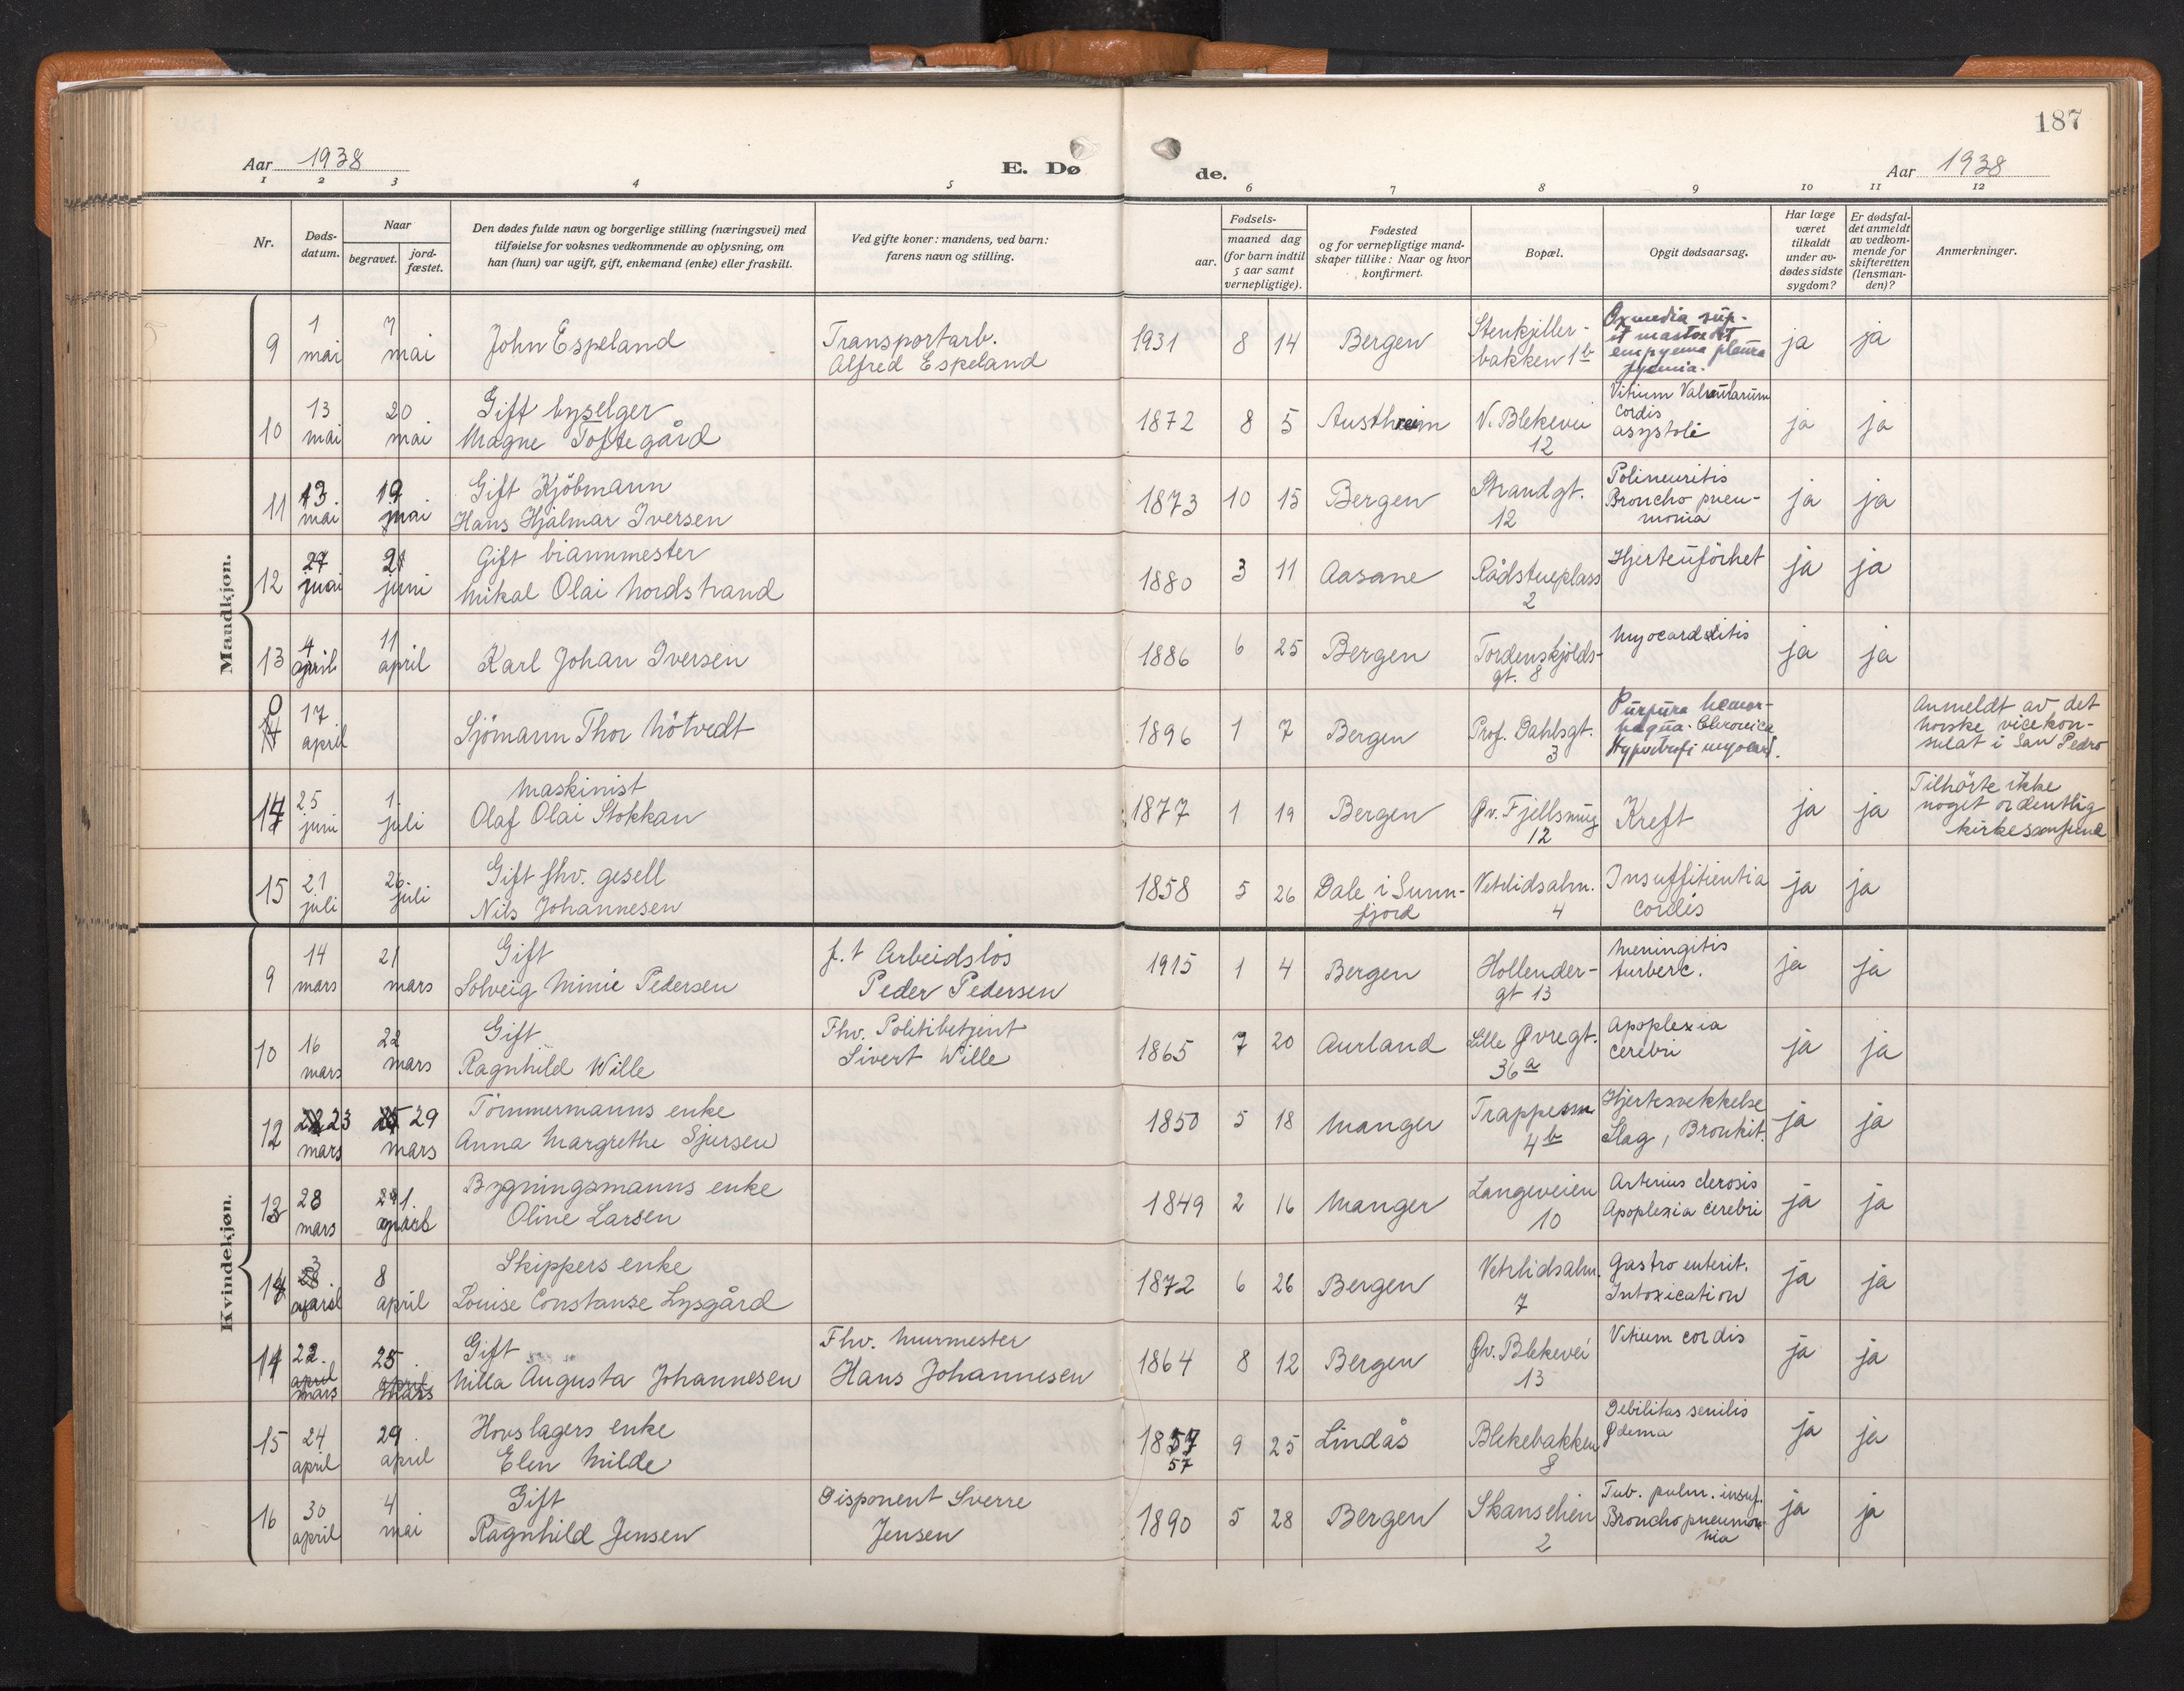 187
Aar 1938
E. Dø
de.
Aar 1938
1 2 3 4 5 6 7 8 9 10 11 12
Nr.
Døds-
datum.
Naar
begravet.
jord-
fæstet.
Den dødes fulde navn og borgerlige stilling (næringsvei) med
tilføielse for voksnes vedkommende av oplysning, om
han (hun) var ugift, gift, enkemand (enke) eller fraskilt.
Ved gifte koner: mandens, ved barn:
farens navn og stilling.
Fødsels-
aar.
maaned dag
(for barn indtil
5 aar samt
vernepligtige).
Fødested
og for vernepligtige mand-
skaper tillike: Naar og hvor
konfirmert.
Bopæl.
Opgit dødsaarsag.
Har læge
været
tilkaldt
under av-
dødes sidste
sygdom?
Er dødsfal-
det anmeldt
av vedkom-
mende for
skifteretten
(lensman-
den)?
Anmerkninger.
Mandkjøn.
9
1
mai
7
mai
John Espeland
Transportarb.
Alfred Espeland
1931 8 14 Bergen
Stenkjeller-
bakken 1b
empyema pleura
ja ja
10
13
mai
20
mai
Gift byselger
Magne Toftegård
1872 8 5 Austrheim
V. Blekevei
12
Vitium Valvularum
cordis
asystoli
ja ja
11
13.
mai
19
mai
Gift Kjöbmann
Hans Hjalmar Iversen
1873 10 15 Bergen
Strandgt.
12
Polineuritis
Broncho pneu-
monia
ja ja
12
27
mai
21
juni
Gift brannmester
Mikal Olai Nordstrand
1880 3 11 Aasane
Rådstueplass
2
Hjerteuförhet
ja ja
13
4
april
11
april
Karl Johan Iversen
1886 6 25 Bergen
Tordenskjolds-
gt. 8
Myocarditis
ja ja
0
14
17
april
Sjömann Thor Nötvedt
1896 1 7 Bergen
Prof. Dahlsgt.
3
Purpura hemor-
hagua. Chronica
Hypertrofi myocard.
Anmeldt av det
norske vicekon-
sulat i San Pedro
14
25
juni
1.
juli
Maskinist
Olaf Olai Stokkan
1877 1 19 Bergen
Øv. Fjellsmug
12
Kreft
ja ja
Tilhörte ikke
noget ordentlig
kirkesamfund
15
21
juli
26.
juli
Gift fhv. gesell
Nils Johannesen
1858 5 26 Dale i Sunn-
fjord
Vetrlidsalm.
4
Insuffitientia
cordis
ja ja
Kvindekjøn.
9
14
mars
21
mars
Gift
Solveig Minie Pedersen
f.t Arbeidslös
Peder Pedersen
1915 1 4 Bergen
Hollender-
gt 13
Meningitis
turberc.
ja ja
10
16
mars
22
mars
Gift
Ragnhild Wille
Fhv. Politibetjent
Sivert Wille
1865 7 20 Aurland
Lille Øvregt.
36 a
Apoplexia
cerebri
ja ja
12
22 23
mars
25 29
mars
Tömmermanns enke
Anna Margrethe Sjursen
1850 5 18 Manger
Trappesm
4 b
Hjertesvekkelse
Slag, Bronkit.
ja ja
13
28
mars
1.
april
Bygningsmanns enke
Oline Larsen
1849 2 16 Manger
Langeveien
10
Arterius clerosis
Apoplexia cerebri
ja ja
14
3
28.
april
8
april
Skippers enke
Louise Constanse Lysgård
1872 6 26 Bergen
Vetrlidsalm.
7
Gastro enterit.
Intoxication
ja ja
14
22.
april
mars
25.
april
mars
Gift
Milla Augusta Johannesen
Fhv. Murmester
Hans Johannesen
1864 8 12 Bergen
Øv. Blekevei
13
Vitium cordis
ja ja
15
24
april
29.
april
Hovslagers enke
Elen Milde
1857
57
9 25 Lindås
Blekebakken
8
Debilitas senilis
Ødema
ja ja
16
30
april
4
mai
Gift
Ragnhild Jensen
Disponent Sverre
Jensen
1890 5 28 Bergen
Skansehien
2
Tub. pulm. insuf.
Bronchopneumon-
nia
ja ja